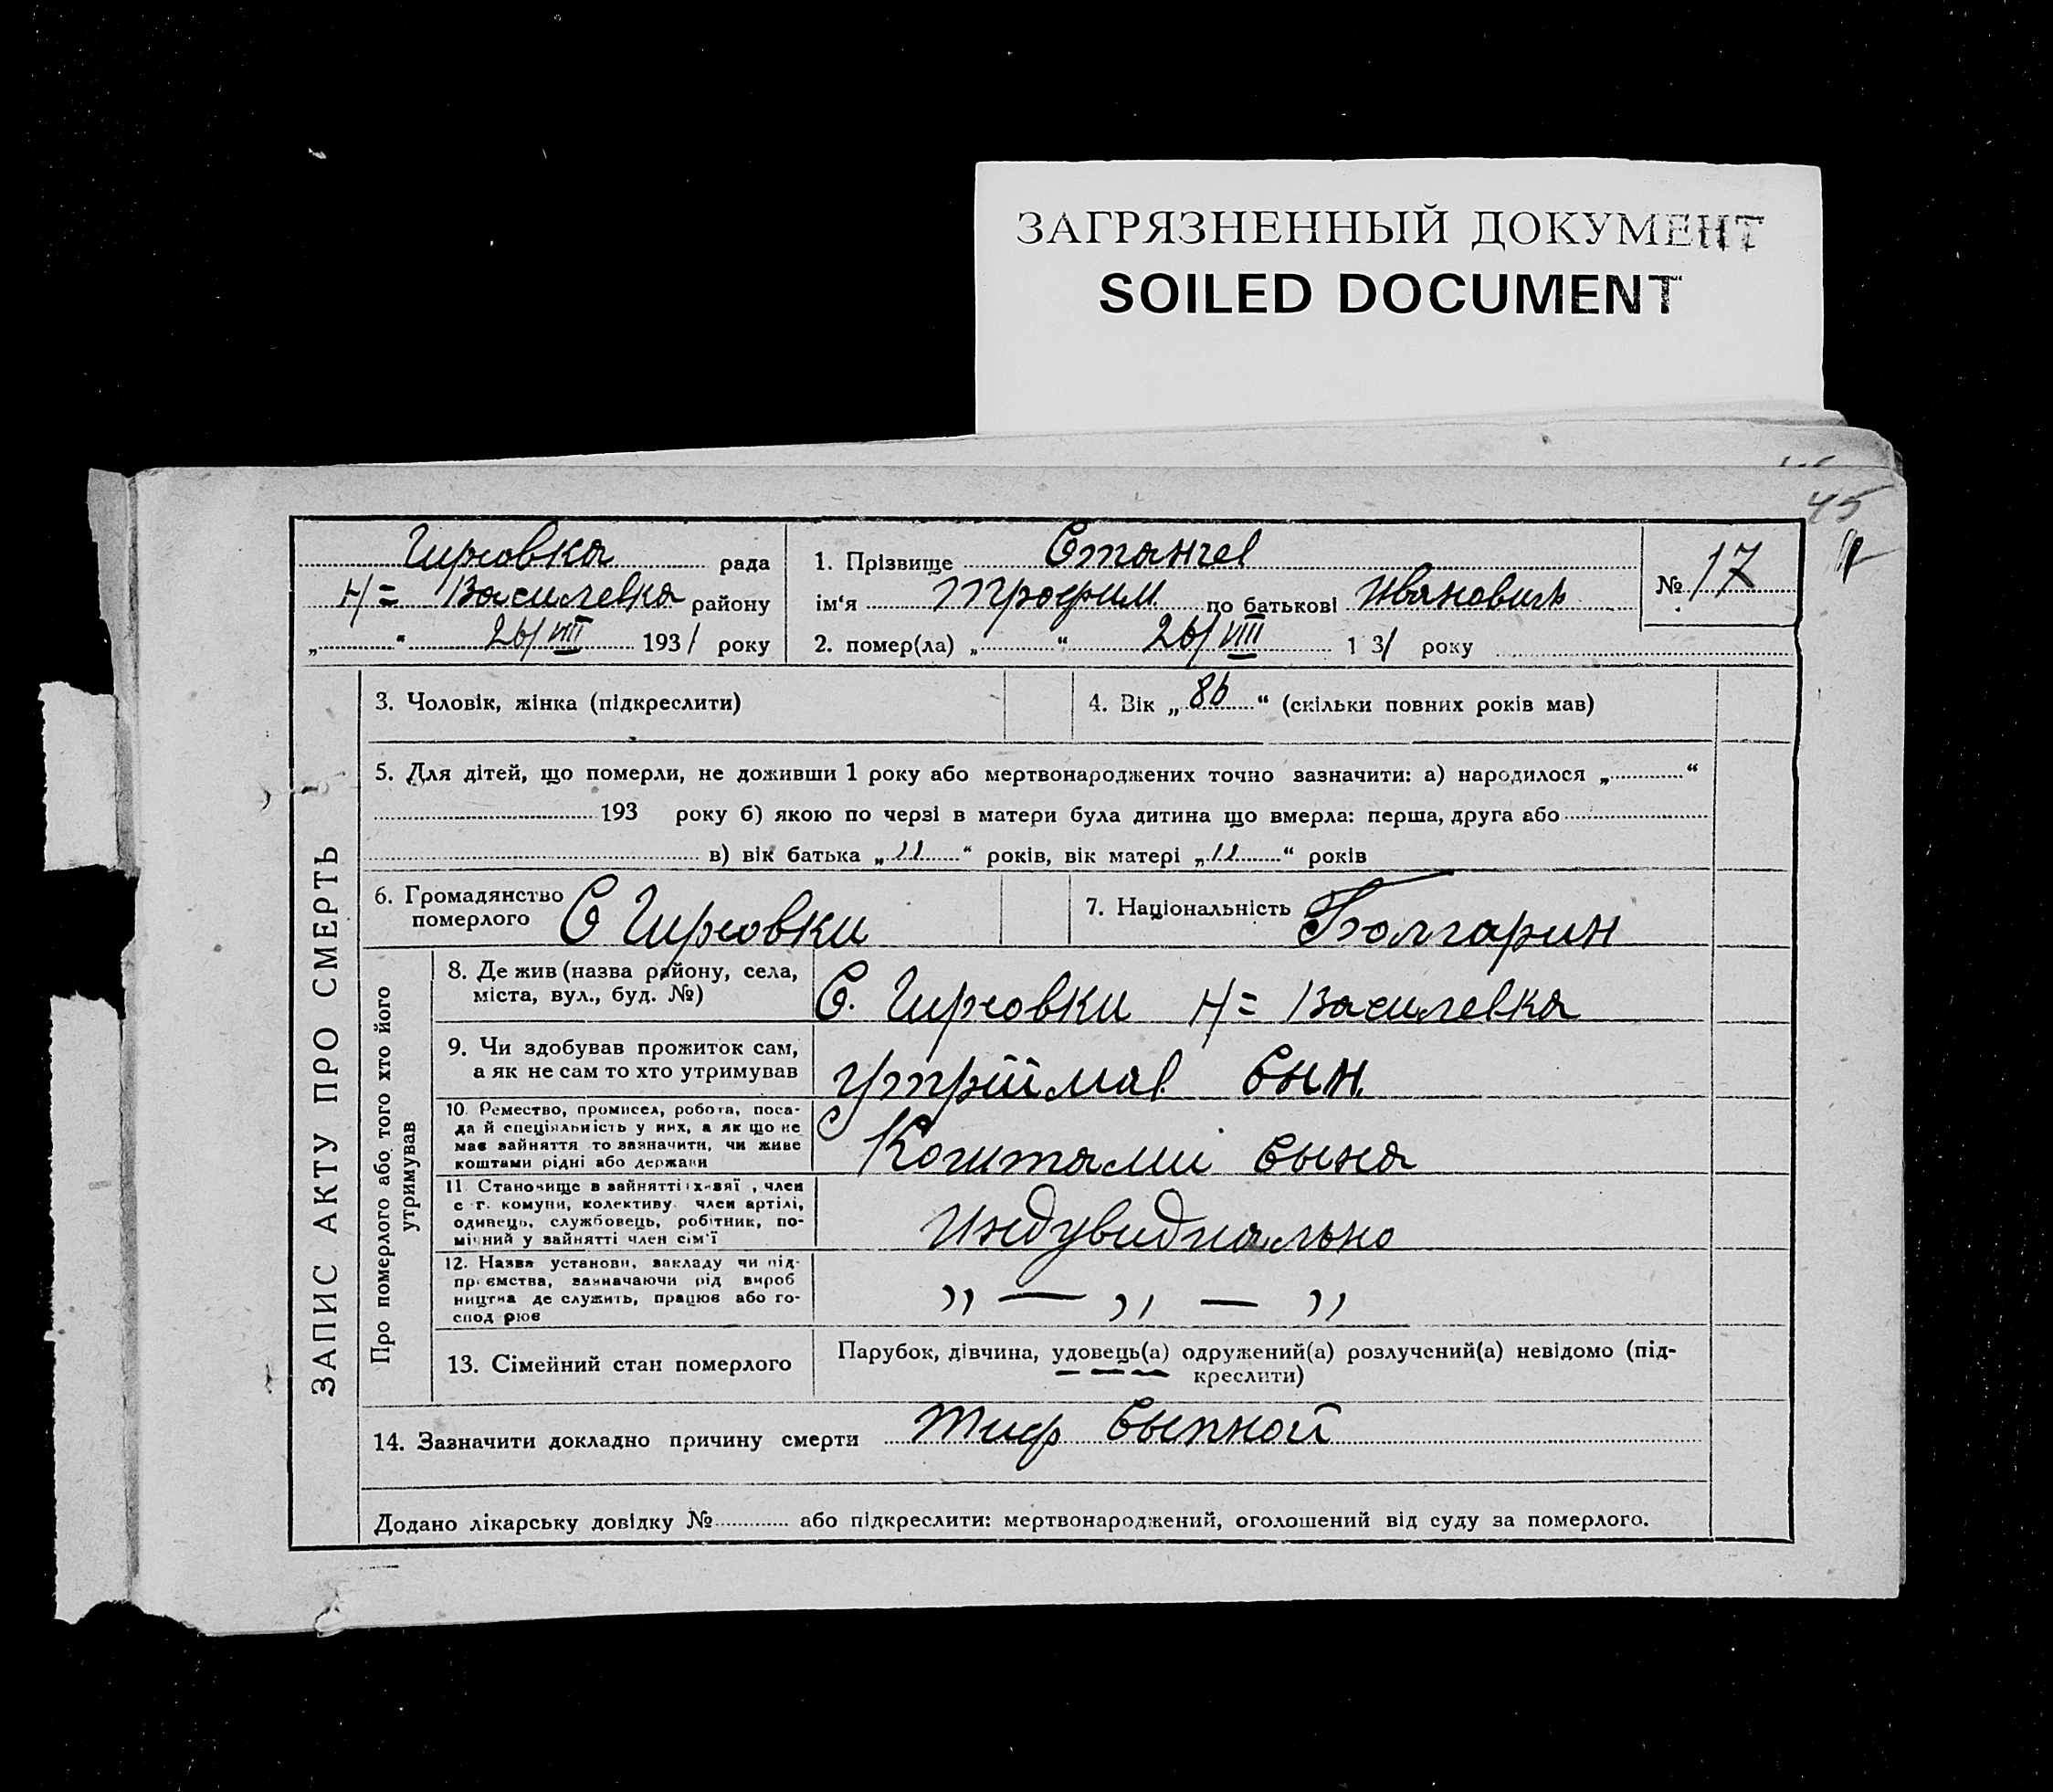 ЗАГРЯЗНЕННЫЙ ДОКУМЕНТ
SOILED DOCUMENT
45
Гирсовка рада
Н= Василевка району
„ “ 26/VIII 1931 року
1. Прізвище Станчев
ім‘я Трофим по батькові Ивановичь
2. помер(ла) „ “ 26/VIII 1 31 року
№ 17
ЗАПИС АКТУ ПРО СМЕРТЬ
3. Чоловік, жінка (підкреслити)
4. Вік „ 86 “ (скільки повних років мав)
5. Для дітей, що померли, не доживши 1 року або мертвонароджених точно зазначити: а) народилося „ “
193 року б) якою по черзі в матери була дитина що вмерла: перша, друга або
в) вік батька „ 11 “ років, вік матері „ 11 “ років
6. Громадянство
померлого С Гирсовки
7. Національність Болгарин
Про померлого або того хто його
утримував
8. Де жив (назва району, села,
міста, вул., буд. №)
С. Гирсовки Н= Василевка
9. Чи здобував прожиток сам,
а як не сам то хто утримував
утриймав сын.
10. Ремество, промисел, робота, поса-
да й спеціяльність у них, а як що не
має зайняття то зазначити, чи живе
коштами рідні або держави
С Коштамиі сына
11 Становище в зайнятті: х-вяї , член
с г. комуни, колективу член артілі,
одинець, службовець, робітник, по-
мічний у зайнятті член сім‘ї
Индувидиально
12. Назва установи, закладу чи під-
приємства, зазначаючи рід вироб
ництва де служить, працює або го-
спод рює
„ — „ — „
13. Сімейний стан померлого
Парубок, дівчина, удовець(а) одружений(а) розлучений(а) невідомо (під-
креслити)
14. Зазначити докладно причину смерти Тиф сыпной
Додано лікарську довідку № або підкреслити: мертвонароджений, оголошений від суду за померлого.